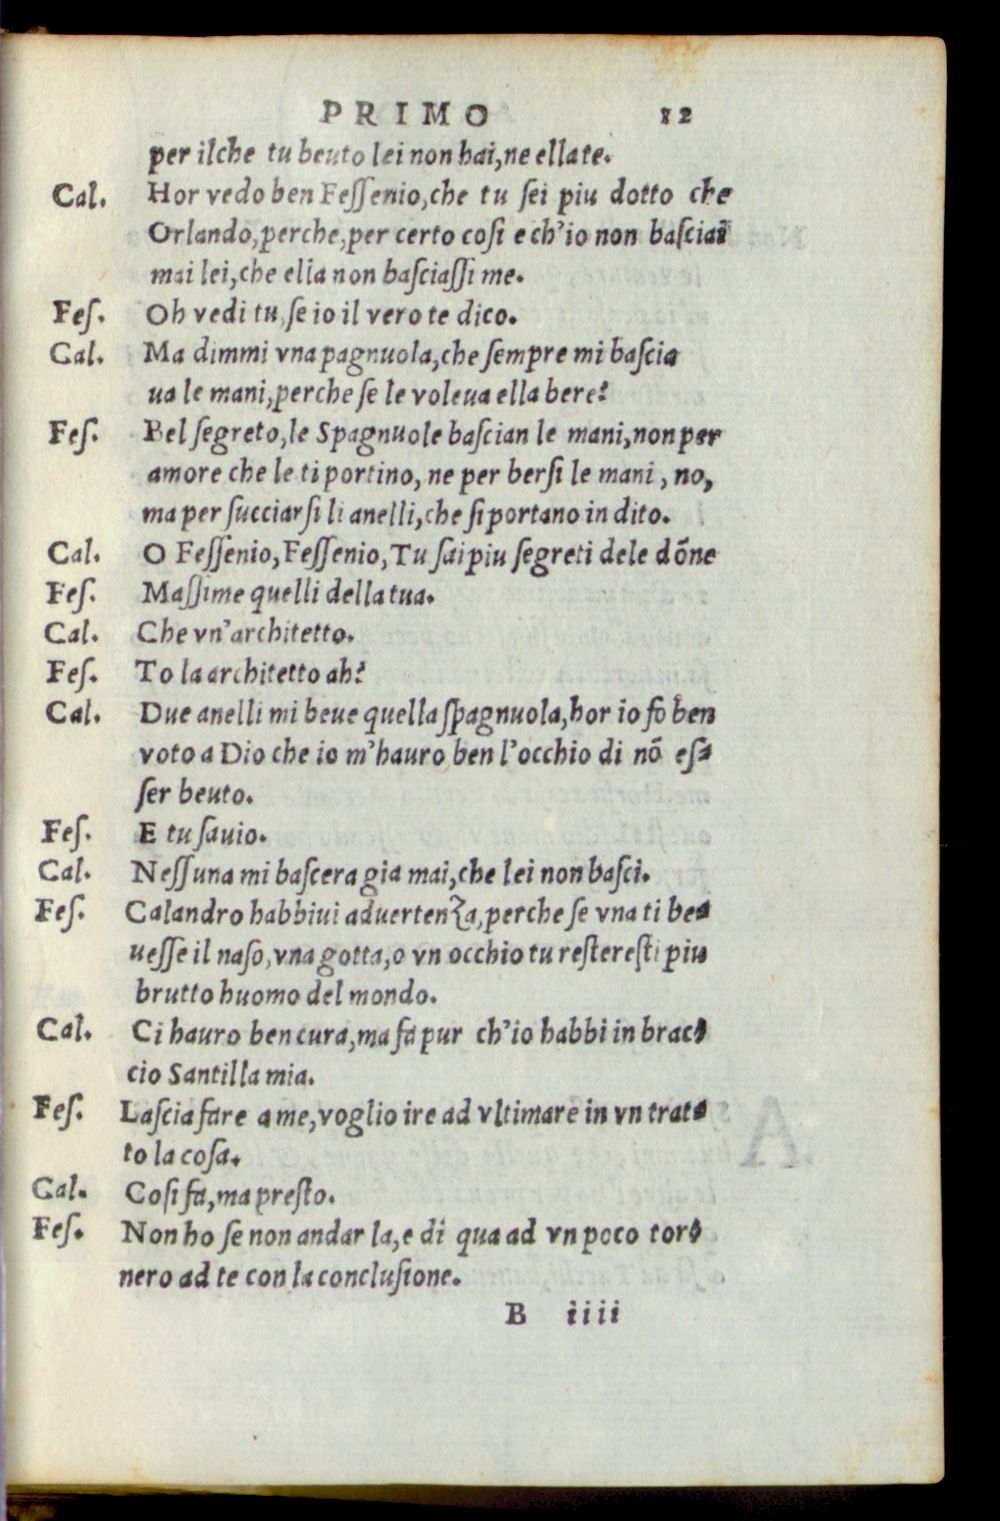 PRIMO 12
per ilche tu beuto lei non hai, ne ella te.
Cal. Hor vedo ben Feſſenio, che tu ſei piu dotto che
Orlando, perche, per certo coſi e ch'io non baſciai
mai lei, che ella non baſciaſſi me.
Feſ. Oh vedi tu, ſe io il vero te dico.
Cal. Ma dimmi vna pagnuola, che ſempre mi baſcia
ua le mani, perche ſe le voleua ella bere?
Feſ. Bel ſegreto, le Spagnuole baſcian le mani, non per
amore che le ti portino, ne per berſi le mani, no,
ma per ſucciarſi li anelli, che ſi portano in dito.
Cal. O Feſſenio, Feſſenio, Tu ſai piu ſegreti dele dōne
Feſ. Maſſime quelli della tua.
Cal. Che vn'architetto.
Feſ. To la architetto ah?
Cal. Due anelli mi beue quella ſpagnuola, hor io fo ben
voto a Dio che io m'hauro ben l'occhio di nō eſ
ſer beuto.
Feſ. E tu ſauio.
Cal. Neſſuna mi baſcera gia mai, che lei non baſci.
Feſ. Calandro habbiui aduertenza, perche ſe vna ti be
ueſſe il naſo, vna gotta, o vn occhio tu reſtereſti piu
brutto huomo del mondo.
Cal. Ci hauro ben cura, ma fa pur ch'io habbi in brac
cio Santilla mia.
Feſ. Laſcia fare a me, voglio ire ad vltimare in vn trat
to la coſa.
Cal. Coſi fa, ma preſto.
Feſ. Non ho ſe non andar la, e di qua ad vn poco tor
nero ad te con la concluſione.
B iiii